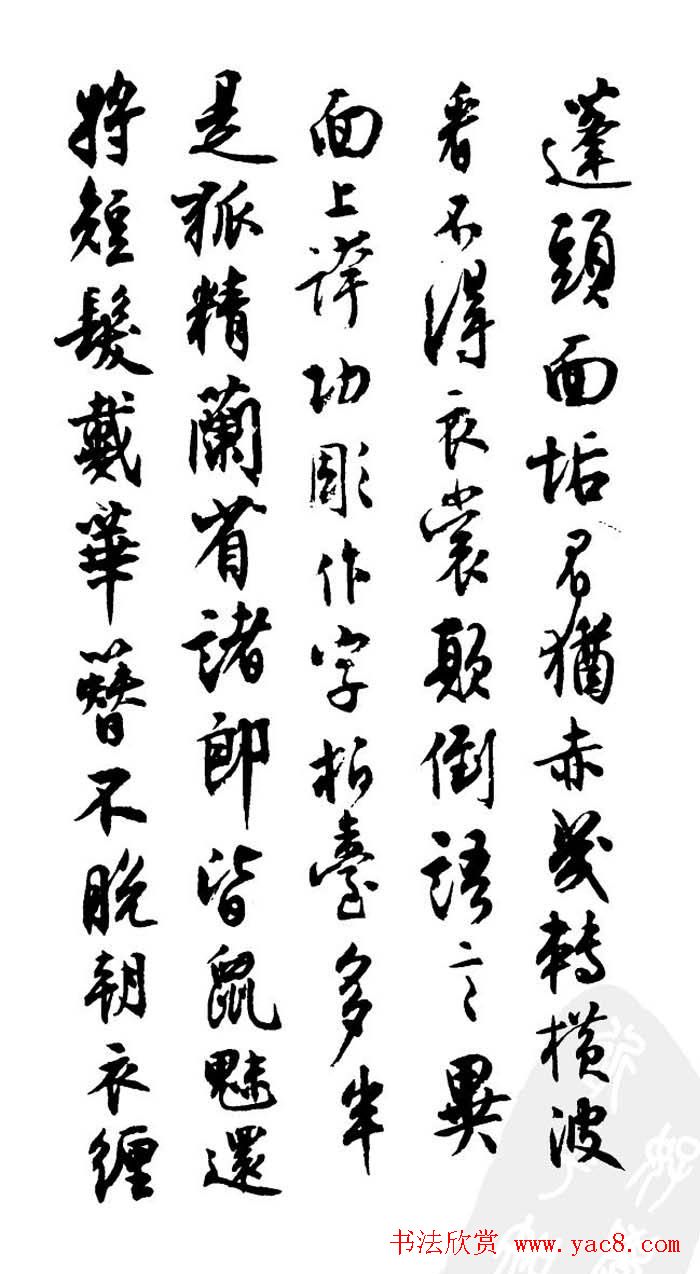 蓬頭面垢眉猶赤幾轉橫波
看不得衣裳顛倒語言異
面上誇功彫作字柏臺多半
是狐精蘭省諸郎皆鼠魅還
將短髮戴華簪不脫朝衣纏
书法欣赏 www.yac8.com